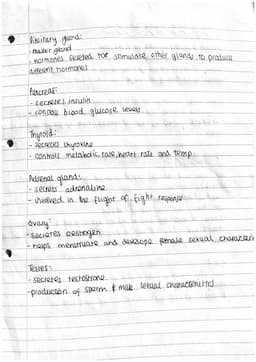 Pituitary gland:
- master gland
- hormones secreted to stimulate other glands to produce
different hormones
Pancreas:
- secretes insulin
- control blood glucose levels
Thyroid:
- secretes thyroxine
- controls metabolic rate, heart rate and temp.
Adrenal gland:
- secrets adrenaline
- involved in the flight or fight response
Ovary:
- secretes oestrogen
- helps menstruate and develope female sexual characteri
Testes:
- secretes testostrone
- production of sperm & male sexual characteristics